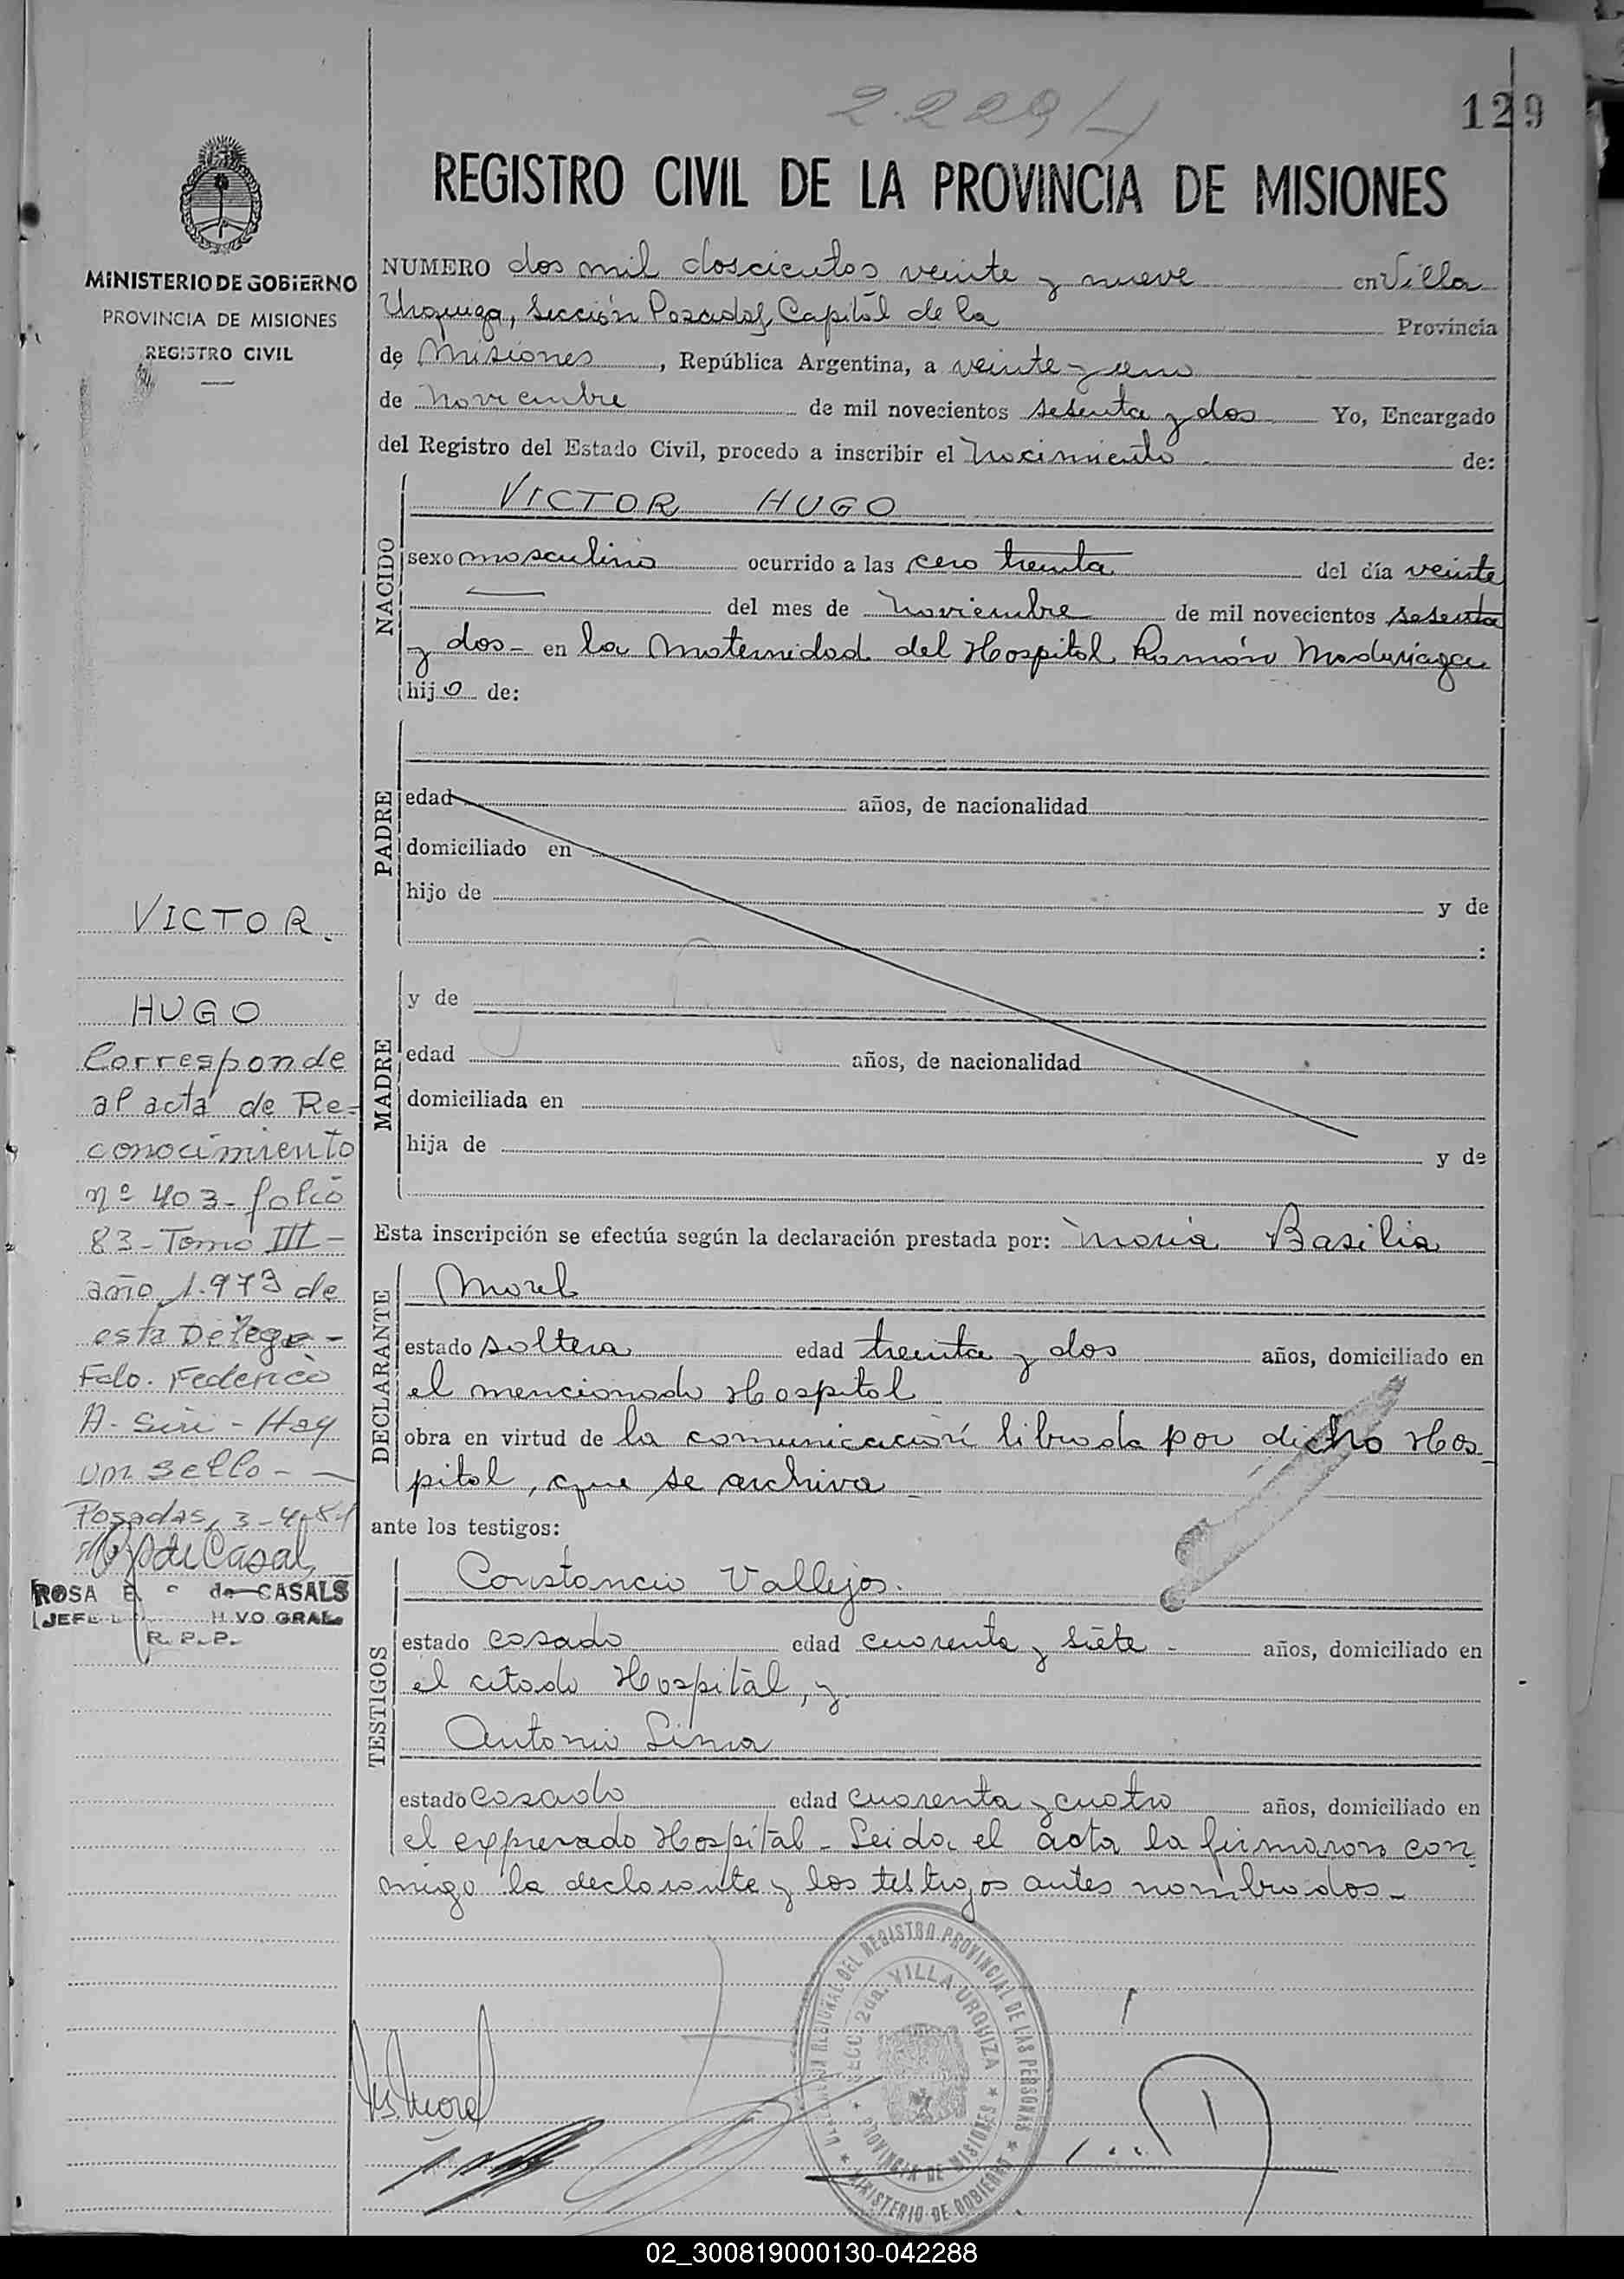 2.229/
129
REGISTRO CIVIL DE LA PROVINCIA DE MISIONES
MINISTERIO DE GOBIERNO
PROVINCIA DE MISIONES
REGISTRO CIVIL
NUMERO dos mil doscientos veinte y nueve en Villa
Urquiza, Sección Posadas, Capital de la Provincia
de Misiones, República Argentina, a veinte y uno
de noviembre de mil novecientos setenta y dos Yo, Encargado
del Registro del Estado Civil, procedo a inscribir el Nacimiento de:
NACIDO
VICTOR HUGO
sexo masculino ocurrido a las cero treinta del día veinte
— del mes de Noviembre de mil novecientos setenta
y dos- en la Maternidad del Hospital Ramón Madariaga
hijo de:
PADRE
edad años, de nacionalidad
domiciliado en
hijo de y de
:
MADRE
y de
edad años, de nacionalidad
domiciliada en
hija de y de
Esta inscripción se efectúa según la declaración prestada por: María Basilia
DECLARANTE
Morel
estado soltera edad treinta y dos años, domiciliado en
el mencionado Hospital
obra en virtud de la comunicación librada por dicho Hos-
pital, que se archiva-
ante los testigos:
TESTIGOS
Constancio Vallejos.
estado casado edad cuarenta y siete- años, domiciliado en
el citado Hospital, y
Antonio Lima
estado casado edad cuarenta y cuatro años, domiciliado en
el expresado Hospital- Leida el acta la firmaron con-
migo la declarante y los testigos antes nombrados-
VICTOR.
HUGO
Corresponde
al acta de Re-
conocimiento
nº 403- folio
83- Tomo III-
año 1.973 de
esta Delega-
Fdo. Federico
A- Siri- Hay
un sello- —
Posadas, 3-4-81
de Casals
ROSA E de CASALS
JEFE VO GRAL.
R. P. P.
Morel
REGIONAL DEL REGISTRO PROVINCIAL DE LAS PERSONAS
SECC. 2da. VILLA URQUIZA
* PROVINCIA DE MISIONES *
* MINISTERIO DE GOBIERNO *
02_300819000130-042288